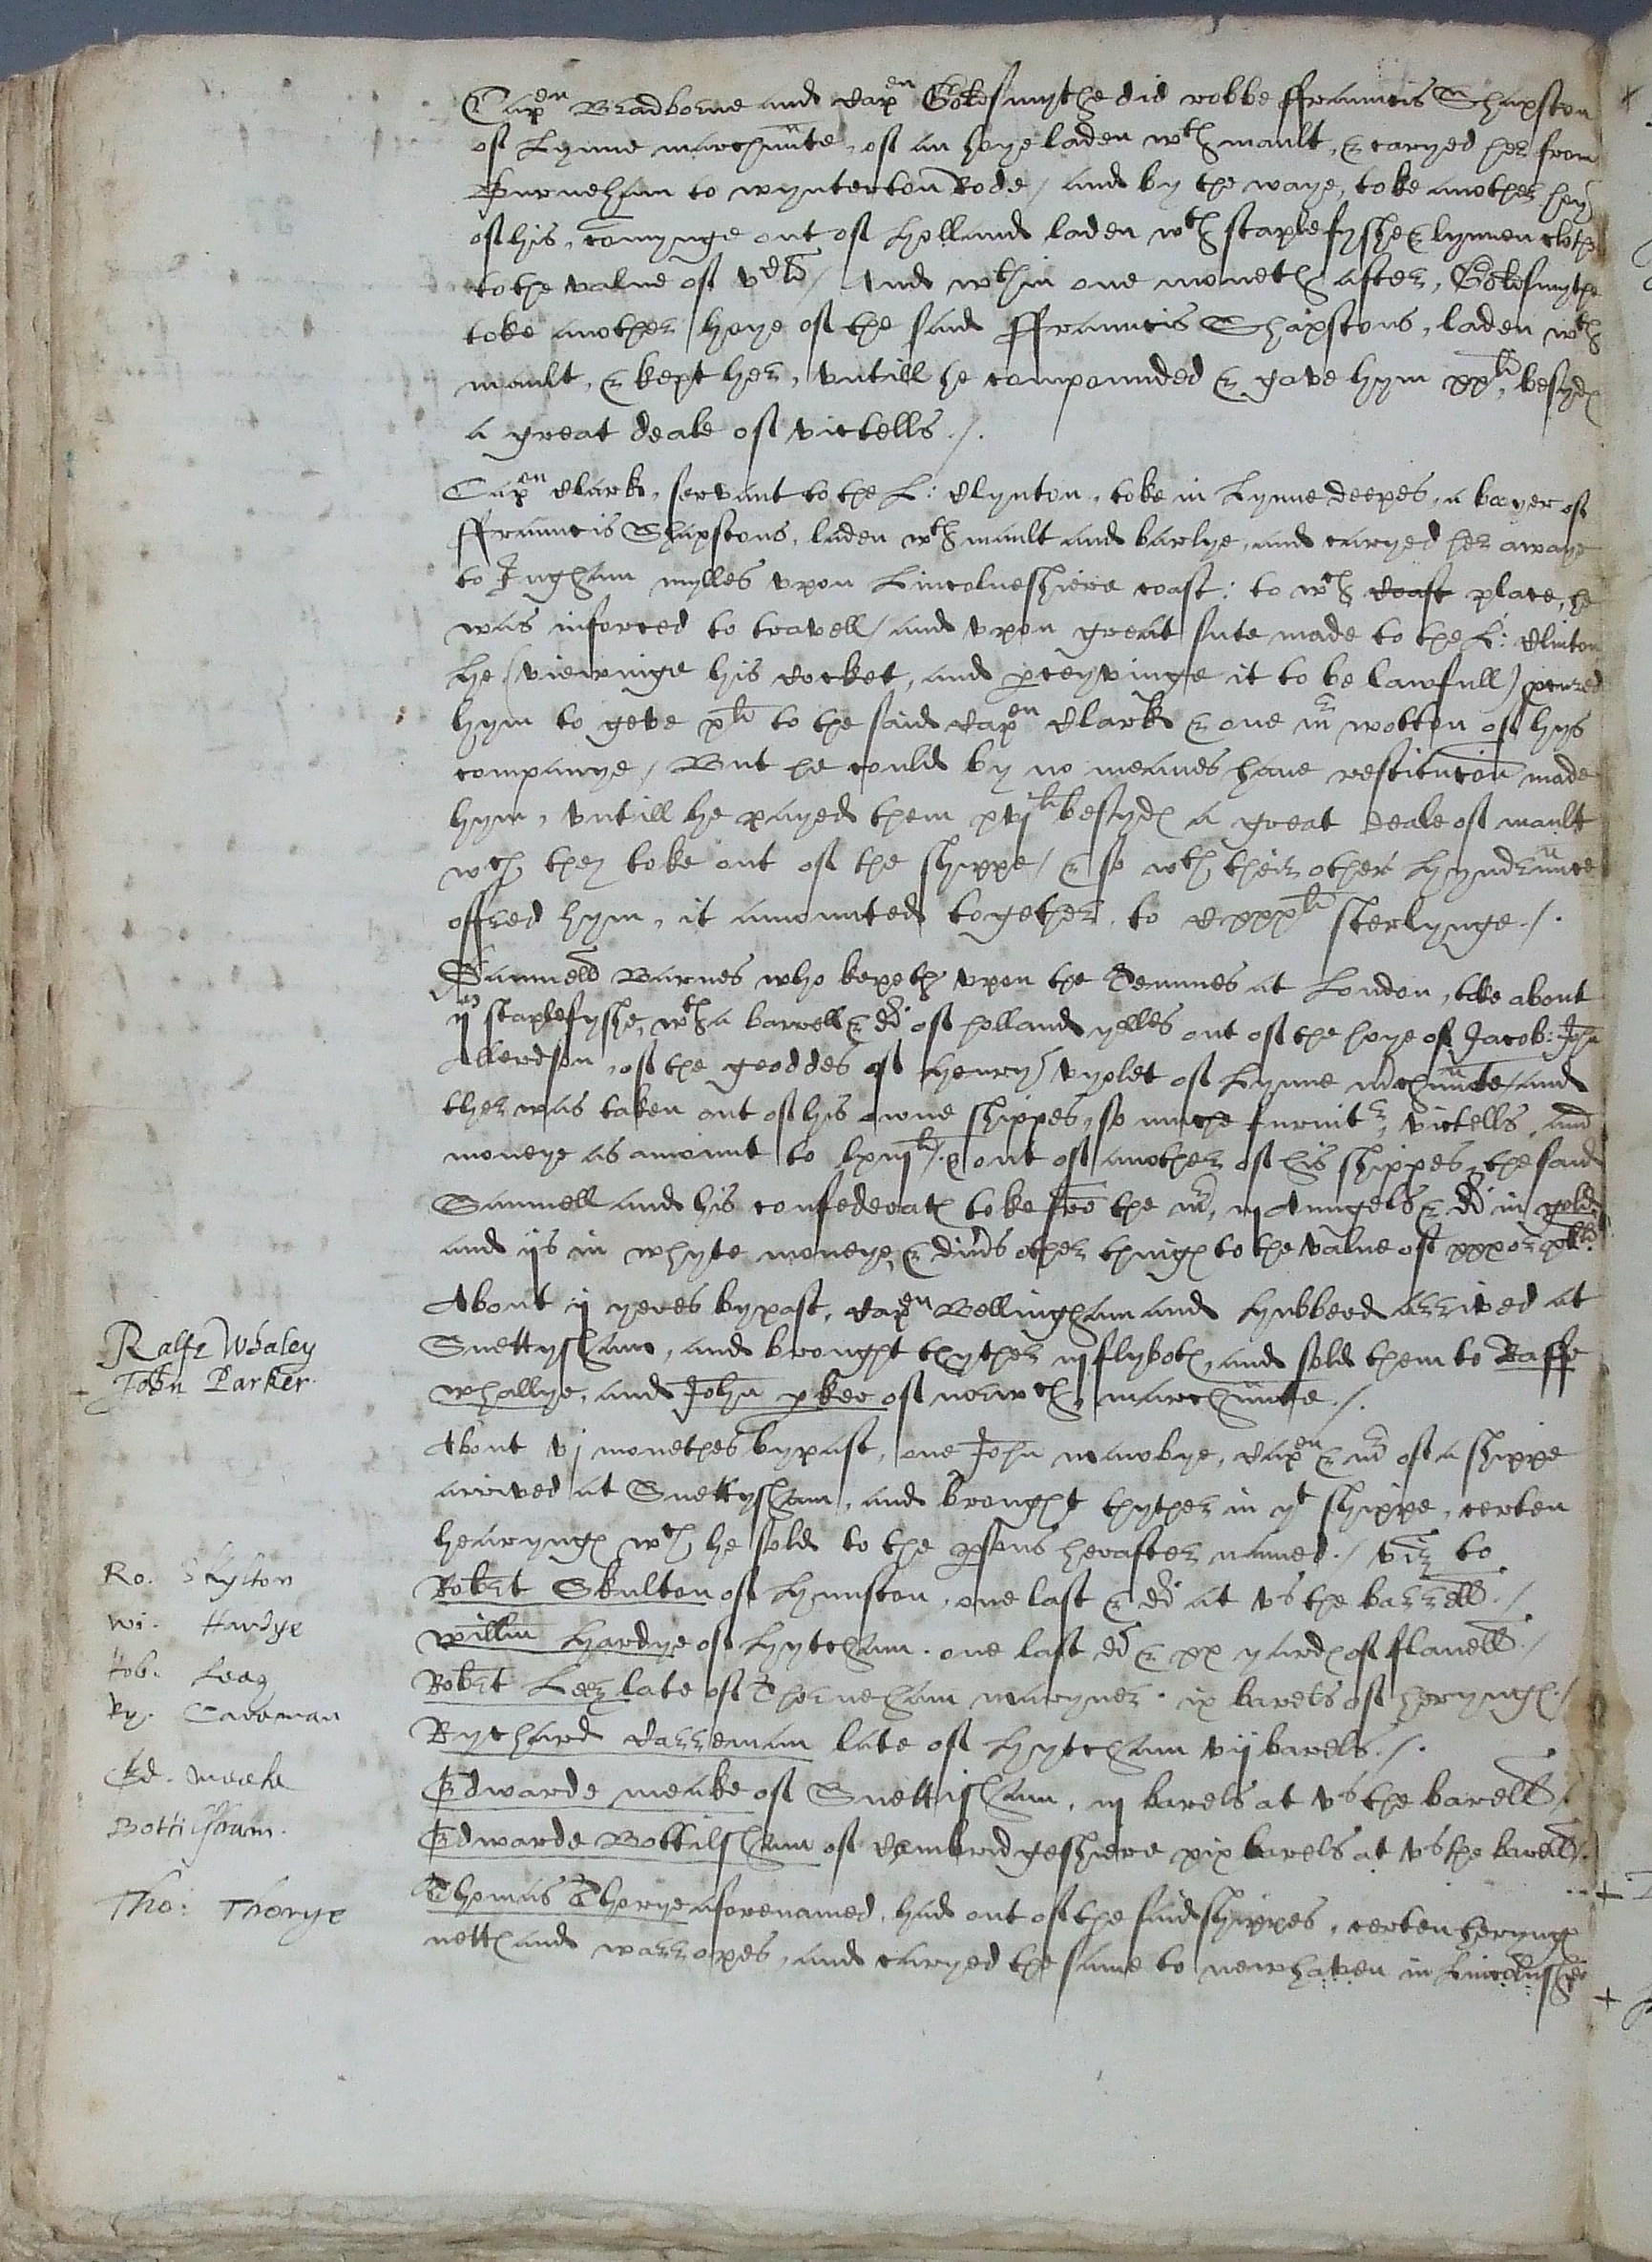 Capen Bradborne and Capen Goldsmythe did robbe ffrauncis Shaxston
of Lynne marchunte, of an hoye laden wth mault, & caryed her from
Burneham to wynterton Rode / and by the waye, toke another hoy
of his, comynge out of Holland laden wth staplefyshe & lynnen clothe
to the value of vCli / And wthin one moneth after, Goldsmythe
toke another hoye of the said ffrauncis Shaxstons, laden wth
mault, & kept her, untill he compounded & gave hym xxli, besydes
a great deale of victells ./.
Capen Clark, servant to the L: Clynton, toke in Lynne deepes, a boyer of
ffrauncis Shaxstons, laden wth mault and barlye, and caryed her awaye
to Ingham mylles upon Lincolneshiere coast: to wch coast place, he
was inforced to travell / and upon great sute made to the L: Clinton
he (viewinge his cocket, and perceyvinge it to be lawfull) pcured
hym to geve xli to the said Capen Clark & one mr wotton of hys
companye / But he could by no meanes have restitucon made
hym, untill he payed them xvjli besydes a great deale of mault
wch they toke out of the shippe / & so wth their other hyndrunce
offred hym, it amounted together, to Cxxxli sterlynge ./.
Samuell Barnes who kepeth upon the Temmes at London, toke about
ijC staplefyshe, wth a barrell & di of holland yelles out of the hoye of Jacob: John
Allerdson, of the gooddes of Henry vyolet of Lynne mchunte / and
ther was taken out of his owne shippes, so muche furnitr, victells, and
moneye as amount to lxiijli / & out of another of his shippes, the said
Samuell and his confederates toke fro the mr, iij Aungels & di in gold
and ijs in whyte moneye, & divrs other thinges to the value of xxx or xlli
About ij yeres bypast, Capen Bellingham and Hubberd arrived at
Snettysham, and brought thyther iij flybotes, and sold them to Raffe
whallye, and John pker of norwch, marchunte ./.
About vj monethes bypast, one John mawbye, Capen & mr of a shippe
arrived at Snettysham, and brought thyther in yt shippe, certen
hearynges wch he sold to the psons herafter named ./ viz to
Robrt Skulton of Hunston, one last & di at vs the barrell ./
Willm Hardye of Hytcham. one last di & xx yardes of flanell ./
Robrt Leez late of Thorneham maryner. ix barels of herynges ./
Rychard Carreman late of Hytcham vij barels ./.
Edwarde meake of Snettisham, iij barels at vs the barell ./
Edwarde Bottilsham of Cambridgeshiere xix barels at vs the barell ./
Thomas Thorye aforenamed, had out of the said shippes, certen herynge
nettes and warropes, and caryed the same to newhaven in Lincolnshr
Ralfe Whaley
John Parker.
Ro. Skylton
Wi. Hardye
Rob. Leez
Ry. Careman
Ed. meeke
Bottilsham.
Tho: Thorye